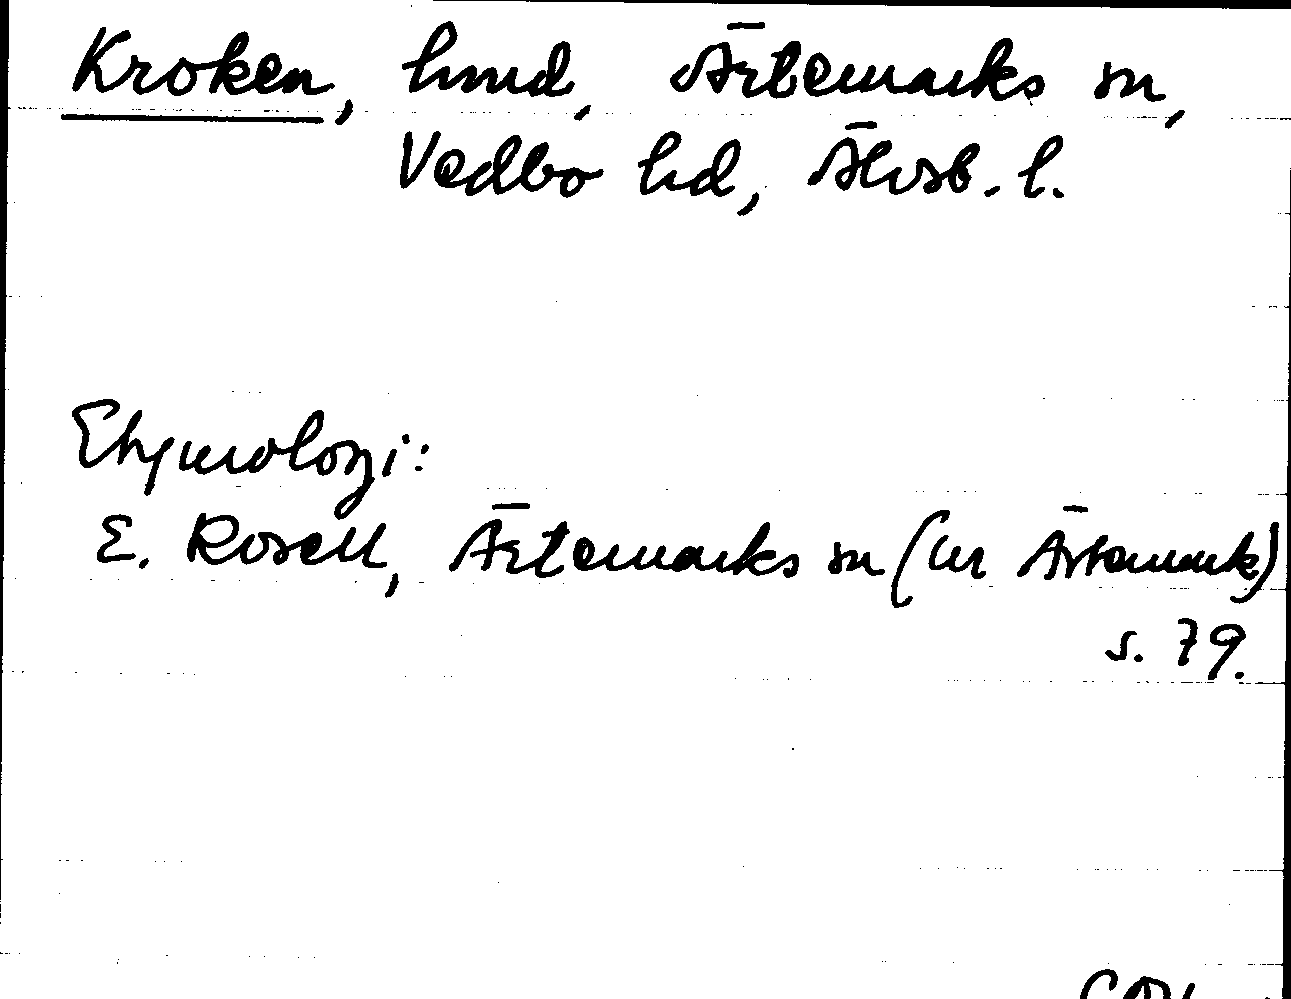 Kroken, hmd, Ärtemarks sn,
Vedbo hd, Älvsb. l.
Etymologi:
E. Rosell, Ärtemarks sn (ur Ärtemark)
s. 79.